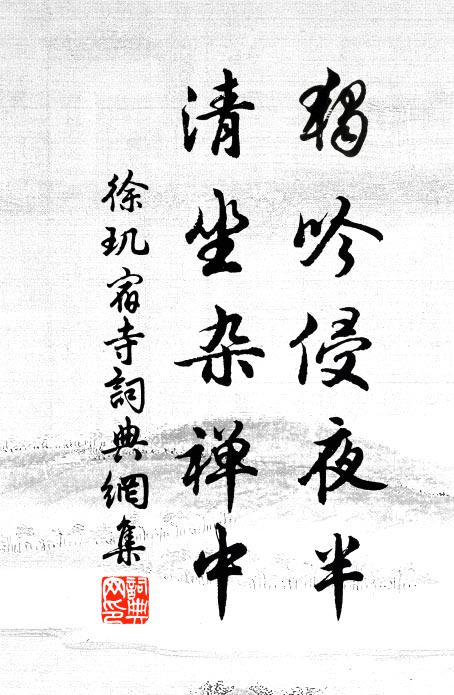 獨吟侵夜半
清坐杂禅中
徐玑宿寺詞典網集
詞典网印